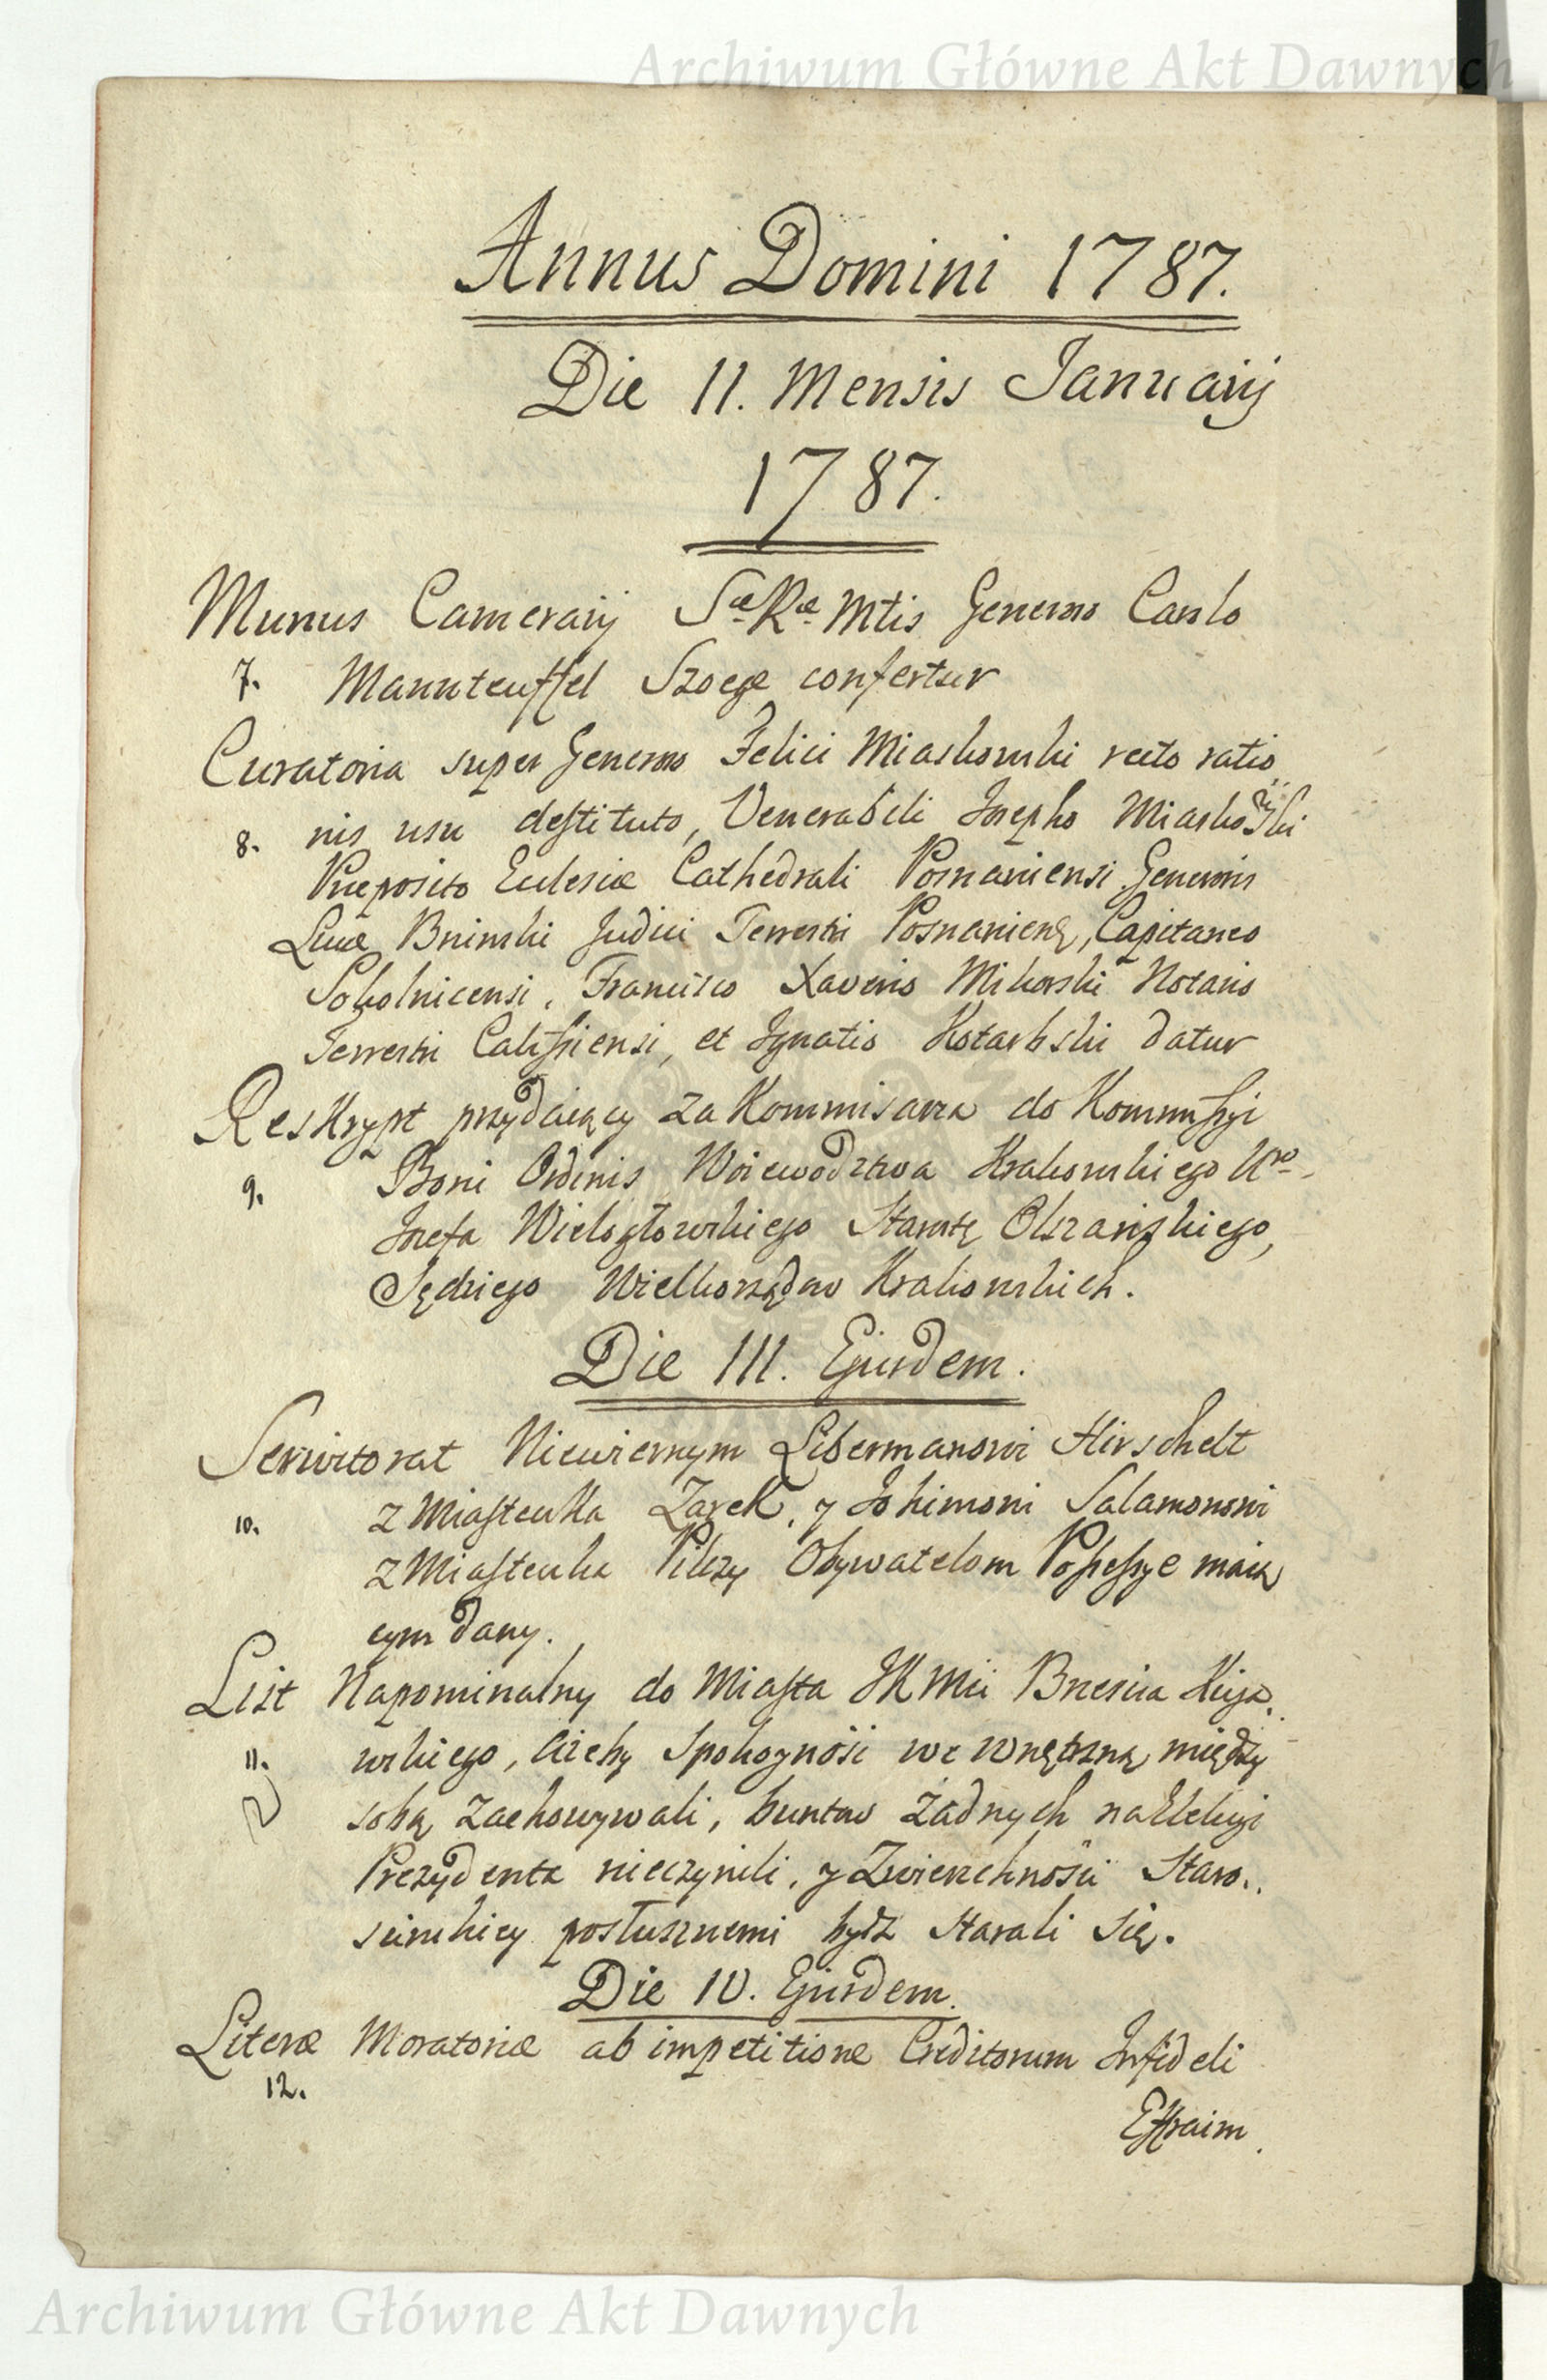 Archiwum Główne Akt Dawnych
Annus Domini 1787.
Die II. Mensis Januarij
1787.
Munus Camerarij Sæ Ræ Mtis Generoso Carolo
7. Mannteuffel Szoege confertur
Curatoria super Generoso Felici Miaskowski recto ratio
8. nis usu destituto, Venerabili Josepho Miaskowski
Præposito Eclesiæ Cathedrali Posnaniensi Generosis
Lucæ Bninski Judici Terrestri Posnaniens, Capitaneo
Sokolnicensi, Francisco Xaverio Mikorski Notario
Terrestri Calissiensi, et Ignatio Kotarbski datur
Reskrypt przydaiący za Kommisarza do Kommissyi
9. Boni Ordinis Woiewodztwa Krakowskiego Uro
Jozefa Wielogłowskiego Starostę Olszańskiego,
Sędziego Wielkorządow Krakowskich.
Die III. Ejusdem.
Serwitorat Niewiernym Libermanowi Hirschelt
10. z Miasteczka Zarek, y Johimoni Salamonowi
z Miasteczka Pilczy Obywatelom Possessye maią
cym dany.
List Napominalny do Miasta JKMci Brzescia Kuja
11. wskiego, ażeby Spokoynosi wewnętrzną między
sobą zachowywali, buntow żadnych na Elekcyi
Prezydenta nieczynili, y Zwierzchności Staro
scinskiey posłusznemi bydz starali się.
Die IV. Ejusdem.
Literæ Moratoriæ ab impetitione Creditorum Infideli
12.
Effraim
Archiwum Główne Akt Dawnych